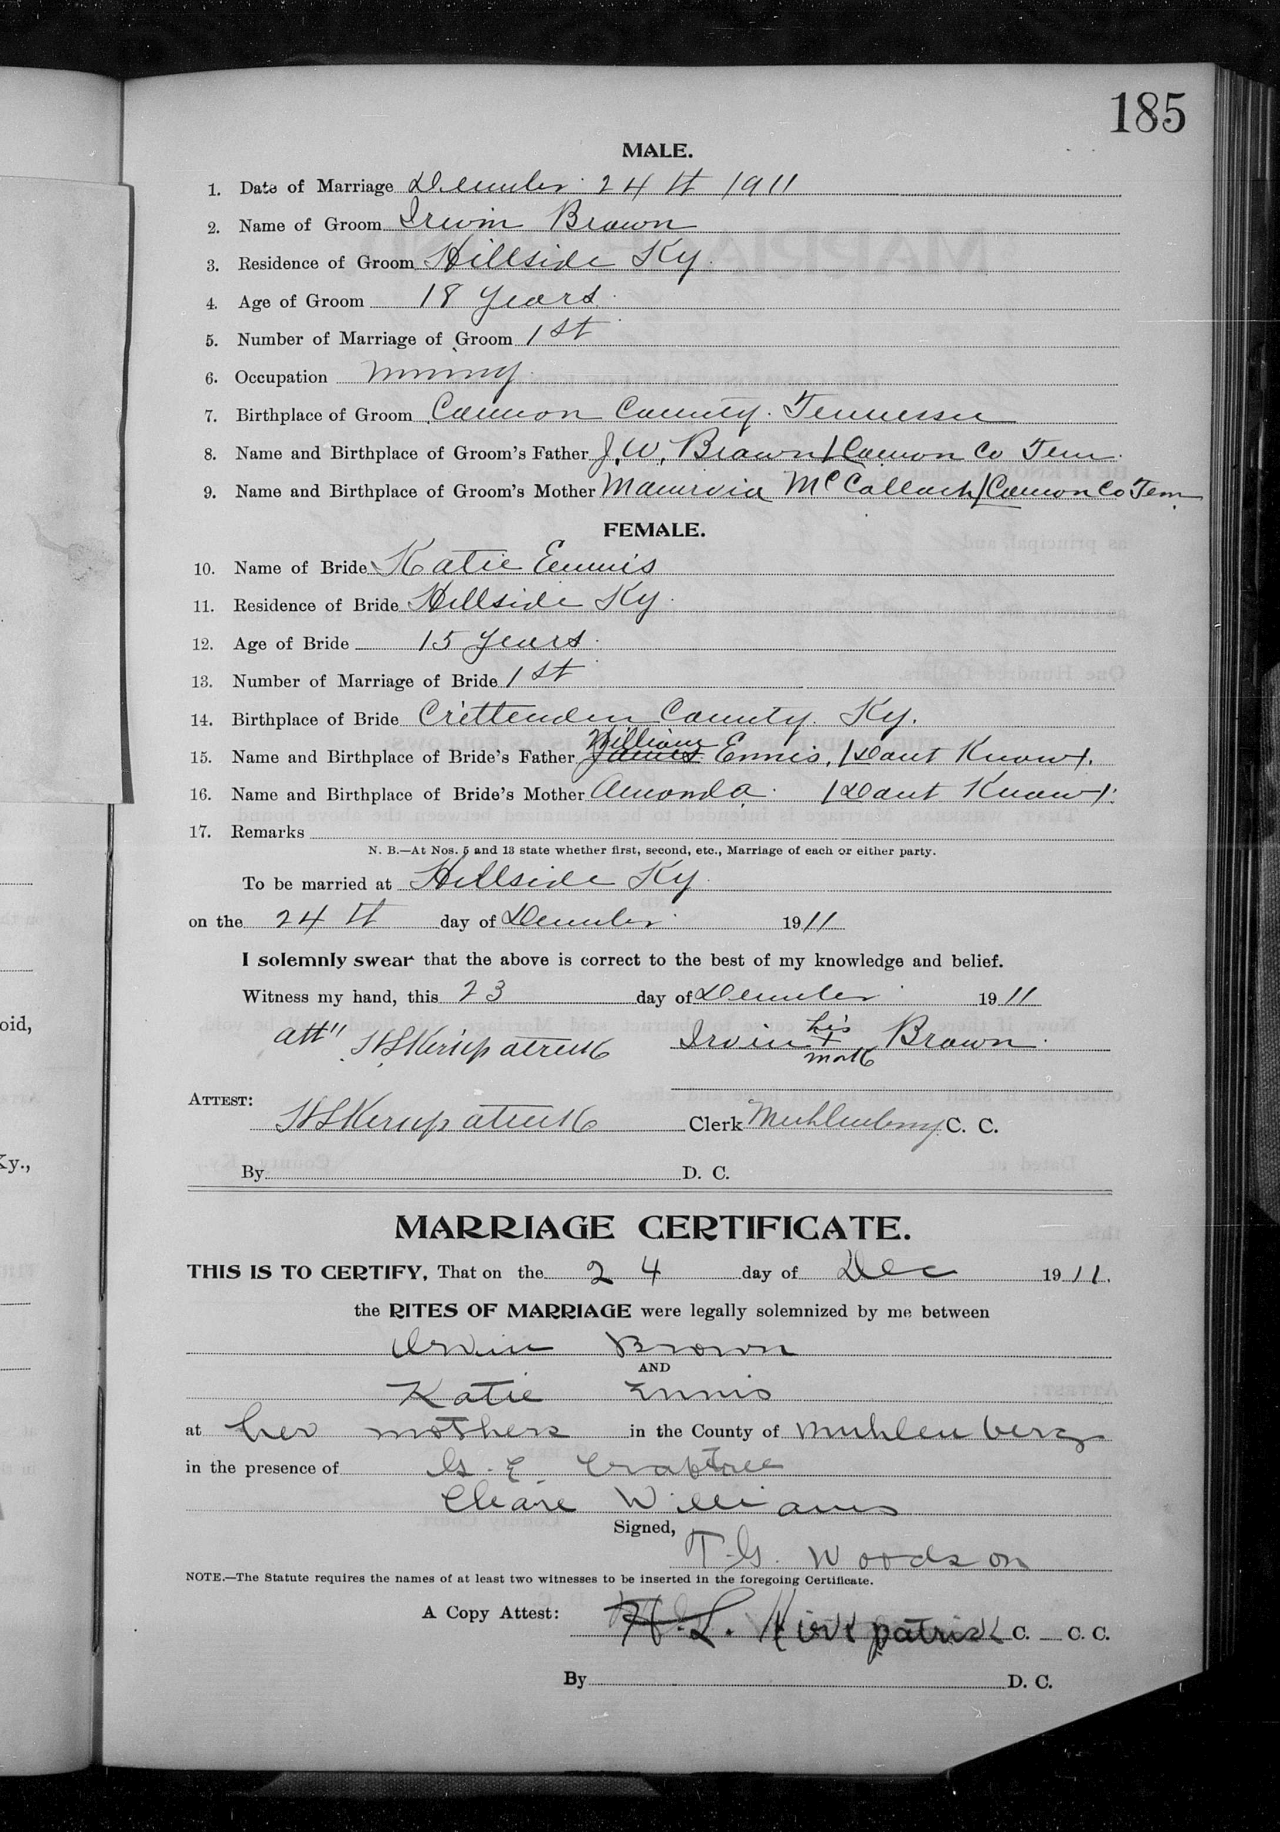 185
MALE.
1. Date of Marriage December 24th 1911
2. Name of Groom Irvin Brown
3. Residence of Groom Hillside Ky.
4. Age of Groom 18 years
5. Number of Marriage of Groom 1st
6. Occupation mining
7. Birthplace of Groom Cannon County. Tennessee
8. Name and Birthplace of Groom's Father J. W. Brown / Cannon Co Tenn.
9. Name and Birthplace of Groom's Mother McCollach / Cannon Co Tenn
FEMALE.
10. Name of Bride Katie Ennis
11. Residence of Bride Hillside Ky.
12. Age of Bride 15 years.
13. Number of Marriage of Bride 1st
14. Birthplace of Bride Crittenden County. Ky.
15. Name and Birthplace of Bride's Father James William Ennis. / Dont Know /.
16. Name and Birthplace of Bride's Mother Amanda. / Dont Know /.
17. Remarks
N. B.—At Nos. 5 and 13 state whether first, second, etc., Marriage of each or either party.
To be married at Hillside Ky.
on the 24th day of December 1911
I solemnly swear that the above is correct to the best of my knowledge and belief.
Witness my hand, this 23 day of December 1911
Att" H L Kirkpatrick Irvin his X mark Brown.
ATTEST: H L Kirkpatrick Clerk Muhlenberg C. C.
By D. C.
MARRIAGE CERTIFICATE.
THIS IS TO CERTIFY, That on the 24 day of Dec 1911.
the RITES OF MARRIAGE were legally solemnized by me between
Irvin Brown
AND
Katie Ennis
at her mothers in the County of Muhlenberg
in the presence of G. E. Crabtree
Williams
Signed,
T. G. Woodson
NOTE.—The Statute requires the names of at least two witnesses to be inserted in the foregoing Certificate.
A Copy Attest: H. L. Kirkpatrick C. C. C.
By D. C.
oid,
Ky.,